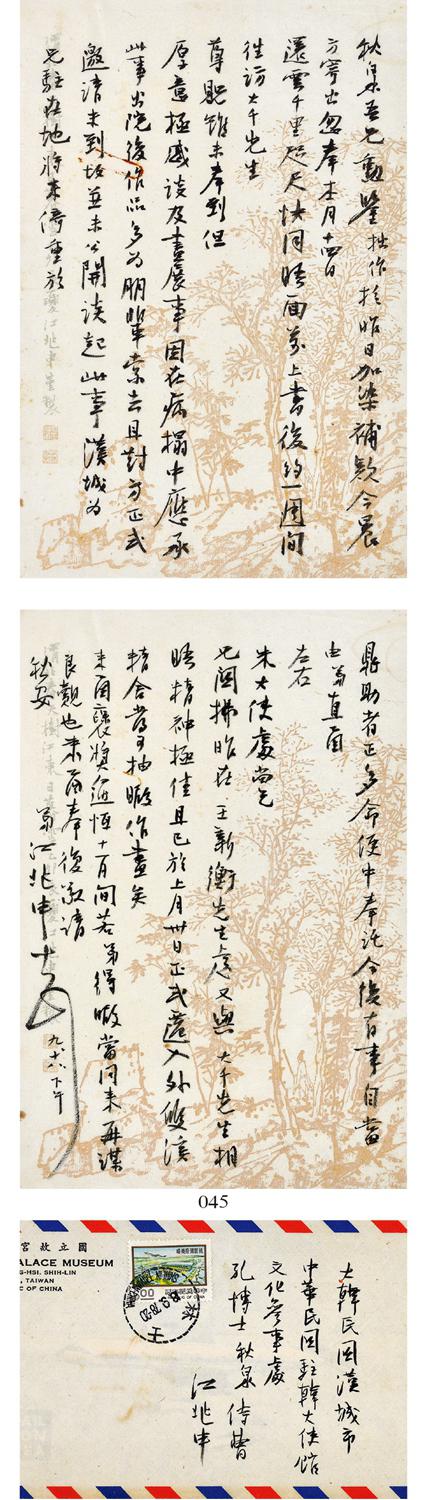 秋泉吾兄勳鑒拙作於昨日加染補款今晨
方寄出忽奉本月十四日
還雲千里咫尺快同晤面前上書後約一週間
往訪大千先生
尊貺雖未奉到但
厚意極感談及畫展事因在病榻中應承
此事出院後作品多為朋輩索去且對方正式
邀請未到故並未公開談起此事漢城為
兄駐在地將來倚重於
鼎助者正多命便中奉託今後有事自當
由弟直函
左右
朱大使處尚乞
兄關拂昨在王新衡先生處又與大千先生相
晤精神極佳且已於上月卅日正式遷入外雙溪
精舍當可抽暇作畫矣
來函褒獎逾恆十月間若弟得暇當同來再謀
良觀也耑函奉復敬請
秋安
弟江兆申
九.十八.下午
045
國立故宮
ALACE MUSEUM
G-HSI. SHIH-LIN
, TAIWAN
IC OF CHINA
大韓民國漢城市
中華民國駐韓大使館
文化參事處
孔博士秋泉侍曹
江兆申